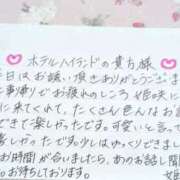 ホテルハイランドの貴方様
本日はお誘い頂きありがとうございま
仕事帰りでお疲れのところ 姫咲に
に来てくれて、たくさん色んなお話
できて楽しかったです。可愛いと言って
っしゃったです。少しはゆっくりできまし
お時間が合いましたら、あのお話し聞
お待ちしております。 姫